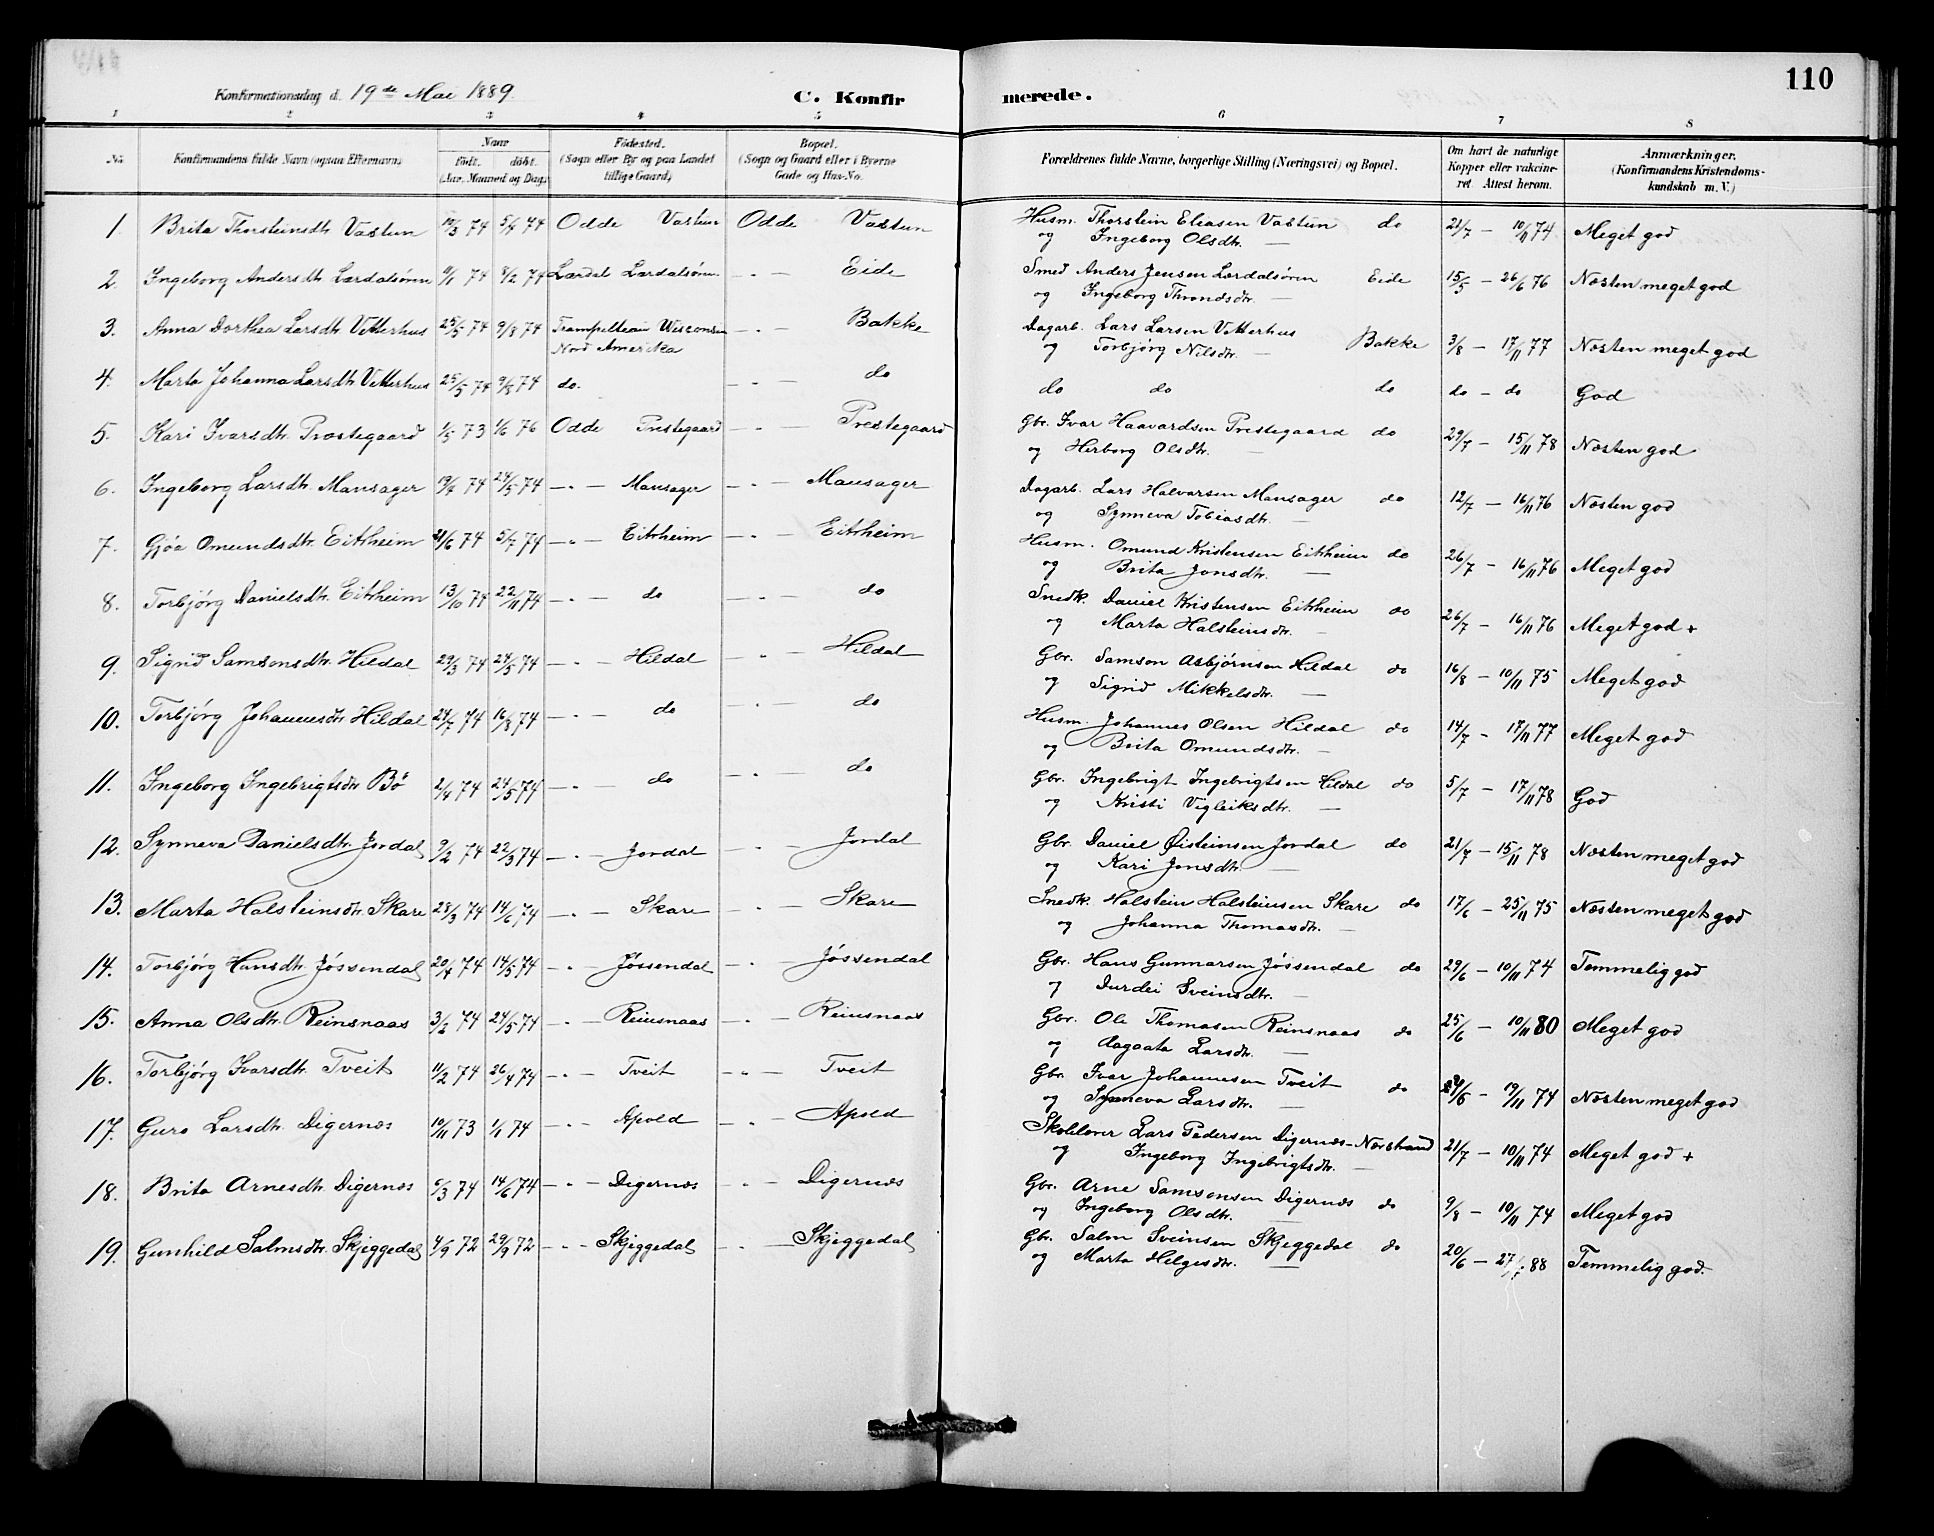 110
Konfirmationsdag d. 19de Mai 1889. C. Konfirmerede.
1 2 3 4 5 6 7 8
No. Konfirmandens fulde Navn (ogsaa Efternavn) Naar født. døbt. (Aar, Maaned og Dag) Födested. (Sogn eller By og paa Landet tillige Gaard) Bopæl. (Sogn og Gaard eller i Byerne Gade og Hus-No. Forældrenes fulde Navne, borgerlige Stilling (Næringsvei) og Bopæl. Om havt de naturlige Kopper eller vakcineret Attest herom. Anmærkninger. (Konfirmandens Kristendomskundskab m. V.)
1. Brita Thorsteinsdtr. Vastun 10/3 74 5/4 74 Odde Vastun Odde Vastun Husm. Thorstein Eliasen Vastun do 21/7 – 10/11 74 Meget god
og Ingeborg Olsdtr. —
2. Ingeborg Andersdtr Lærdalsøren 9/1 74 8/2 74 Lærdal Lærdalsøren – " – Eide Smed Anders Jensen Lærdalsören Eide 15/5 – 26/6 76 Næsten meget god
og Ingeborg Throndsdtr. —
3. Anna Dorthea Larsdtr Vetterhus 25/5 74 9/8 74 Trampelteau Wisconsin – " – Bakke Dagarb. Lars Larsen Vetterhus Bakke 3/8 – 17/11 77 Næsten meget god
Nord Amerika og Torbjörg Nilsdtr. —
4. Marta Johanna Larsdtr Vetterhus 25/5 74 9/8 74 do. – " – do do do do do – do God
5. Kari Ivarsdtr. Prestegaard 1/5 73 1/6 76 Odde Prestegaard – " – Prestegaard Gbr. Ivar Haavardsen Prestegaard do 29/7 – 15/11 78 Næsten god
og Herborg Olsdtr. —
6. Ingeborg Larsdtr. Mansager 19/4 74 24/5 74 – " – Mansager – " – Mansager Dagarb. Lars Halvarsen Mansager do 12/7 – 16/11 76 Næsten god
og Synneva Tobiasdtr. —
7. Gjøa Omundsdtr. Eitrheim 21/6 74 5/7 74 – " – Eitrheim – " – Eitrheim Husm. Omund Kristensen Eitrheim do 26/7 – 16/11 76 Meget god
og Brita Jonsdtr. —
8. Torbjörg Danielsdtr. Eitrheim 13/10 74 22/11 74 – " – do – " – do Snedk. Daniel Kristensen Eitrheim do 26/7 – 16/11 76 Meget god +
og Marta Halsteinsdtr. —
9. Sigrid Samsonsdtr. Hildal 29/3 74 24/5 74 – " – Hildal – " – Hildal Gbr. Samson Asbjørnsen Hildal do 16/8 – 10/11 75 Meget god
og Sigrid Mikkelsdtr. —
10. Torbjörg Johannesdtr Hildal 24/7 74 16/8 74 – " – do – " – do Husm. Johannes Olsen Hildal do 14/7 – 17/11 77 Meget god
og Brita Omundsdtr. —
11. Ingeborg Ingebrigtsdtr Bö 2/4 74 24/5 74 – " – do – " – do Gbr. Ingebrigt Ingebrigtsen Hildal do 5/7 – 17/11 78 God
og Kristi Vigleiksdtr. —
12. Synneva Danielsdtr. Jordal 9/2 74 22/3 74 – " – Jordal – " – Jordal Gbr. Daniel Øisteinsen Jordal do 21/7 – 15/11 78 Næsten meget god
og Kari Jonsdtr. —
13. Marta Halsteinsdtr. Skare 28/3 74 14/6 74 – " – Skare – " – Skare Snedk. Halstein Halsteinsen Skare do 17/6 – 25/11 75 Næsten meget god
og Johanna Thomasdtr. —
14. Torbjörg Hansdtr. Jössendal 20/4 74 14/5 74 – " – Jössendal – " – Jössendal Gbr. Hans Gunnarsen Jössendal do 29/6 – 10/11 74 Temmelig god
og Durdei Sveinsdtr. —
15. Anna Olsdtr. Reinsnaas 3/2 74 24/5 74 – " – Reinsnaas – " – Reinsnaas Gbr. Ole Thomasen Reinsnaas do 25/6 – 10/11 80 Meget god
og Aagaata Larsdtr. —
16. Torbjörg Ivarsdtr. Tveit 11/2 74 26/4 74 – " – Tveit – " – Tveit Gbr. Ivar Johannesen Tveit do 29/6 – 19/11 74 Næsten meget god
og Synneva Larsdtr. —
17. Guro Larsdtr. Digernæs 10/11 73 1/1 74 – " – Apold – " – Apold Skolelærer Lars Pedersen Digernæs-Nærstrand 21/7 – 10/11 74 Meget god +
og Ingeborg Ingebrigtsdtr. —
18. Brita Arnesdtr. Digernæs 5/3 74 14/6 74 – " – Digernæs – " – Digernæs Gbr. Arne Samsonsen Digernæs do 9/8 – 10/11 74 Meget god
og Ingeborg Olsdtr. —
19. Gunhild Salmsdtr. Skjeggedal 4/9 72 29/9 72 – " – Skjeggedal – " – Skjeggedal Gbr. Salm Sveinsen Skjeggedal do 20/6 – 27/7 88 Temmelig god.
og Marta Helgesdtr. —